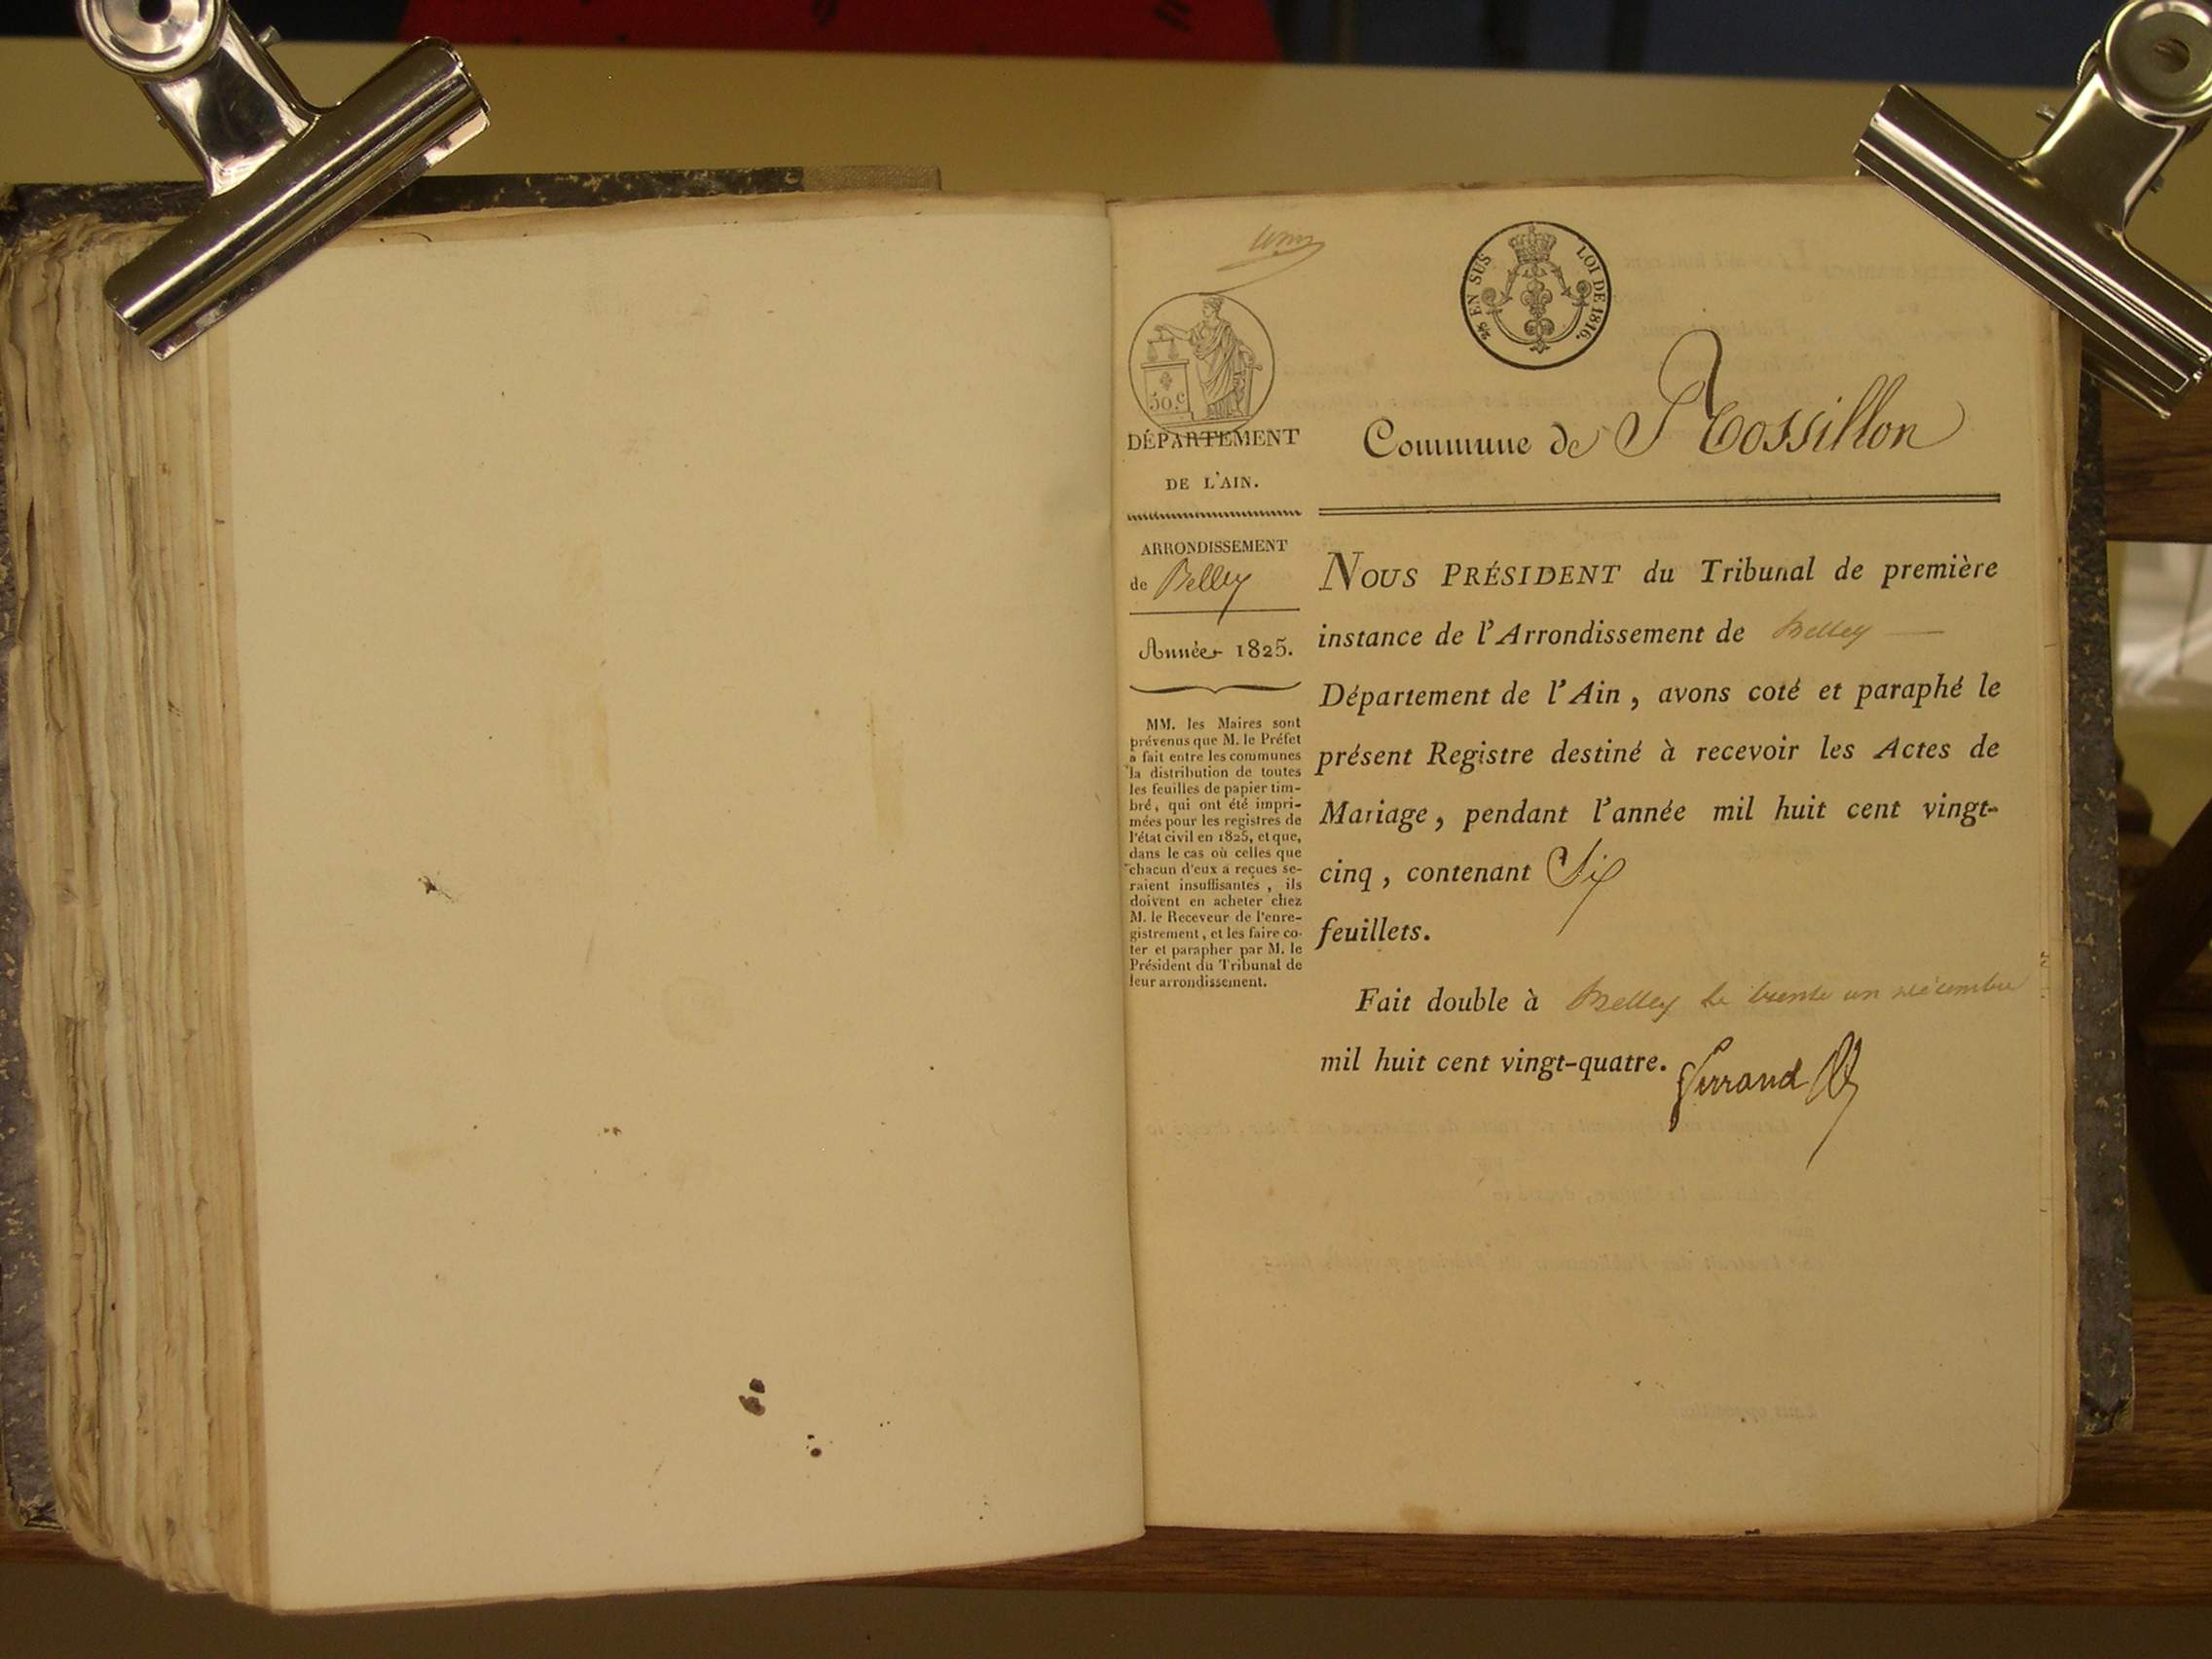 EN SUS
LOI DE 1816.
50.c
DÉPARTEMENT
DE L'AIN.
Commune de Rossillon
ARRONDISSEMENT
de Belley
Année 1825.
MM. les Maires sont
prévenus que M. le Préfet
a fait entre les communes
la distribution de toutes
les feuilles de papier tim-
bré, qui ont été impri-
mées pour les registres de
l'état civil en 1825, et que,
dans le cas où celles que
chacun d'eux a reçues se-
raient insuffisantes, ils
doivent en acheter chez
M. le Receveur de l'enre-
gistrement, et les faire co-
ter et parapher par M. le
Président du Tribunal de
leur arrondissement.
NOUS PRÉSIDENT du Tribunal de première
instance de l'Arrondissement de Belley
Département de l'Ain, avons coté et paraphé le
présent Registre destiné à recevoir les Actes de
Mariage, pendant l'année mil huit cent vingt-
cinq, contenant Six
feuillets.
Fait double à Belley le trente un décembre
mil huit cent vingt-quatre.